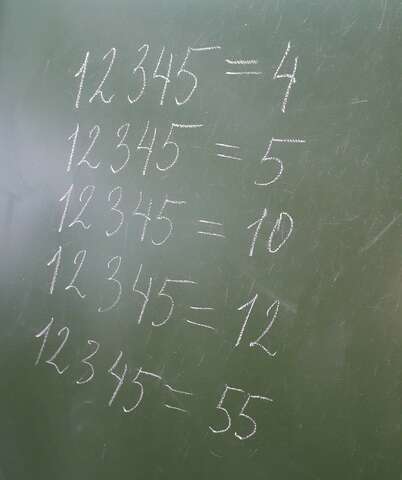 12345 = 4
12345 = 5
12345 = 10
12345 = 12
12345 = 55